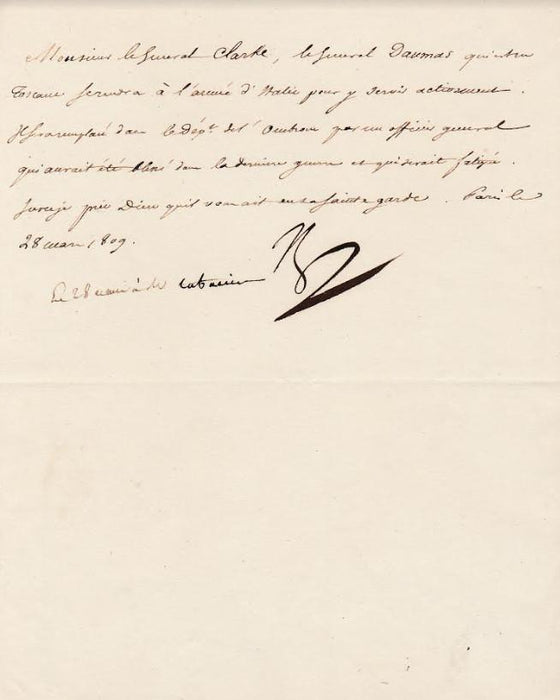 Monsieur le General Clarke, le General Daumas qui est en
Toscane se rendra à l'armée d'Italie pour y servir activement.
Il sera remplacé dans le Dépt. de l'Ombrone par un officier general
qui aurait été blessé dans la derniere guerre et qui serait fatigué.
Sur ce je prie Dieu qu'il vous ait en sa sainte garde. Paris le
28 mars 1809.
Le 28